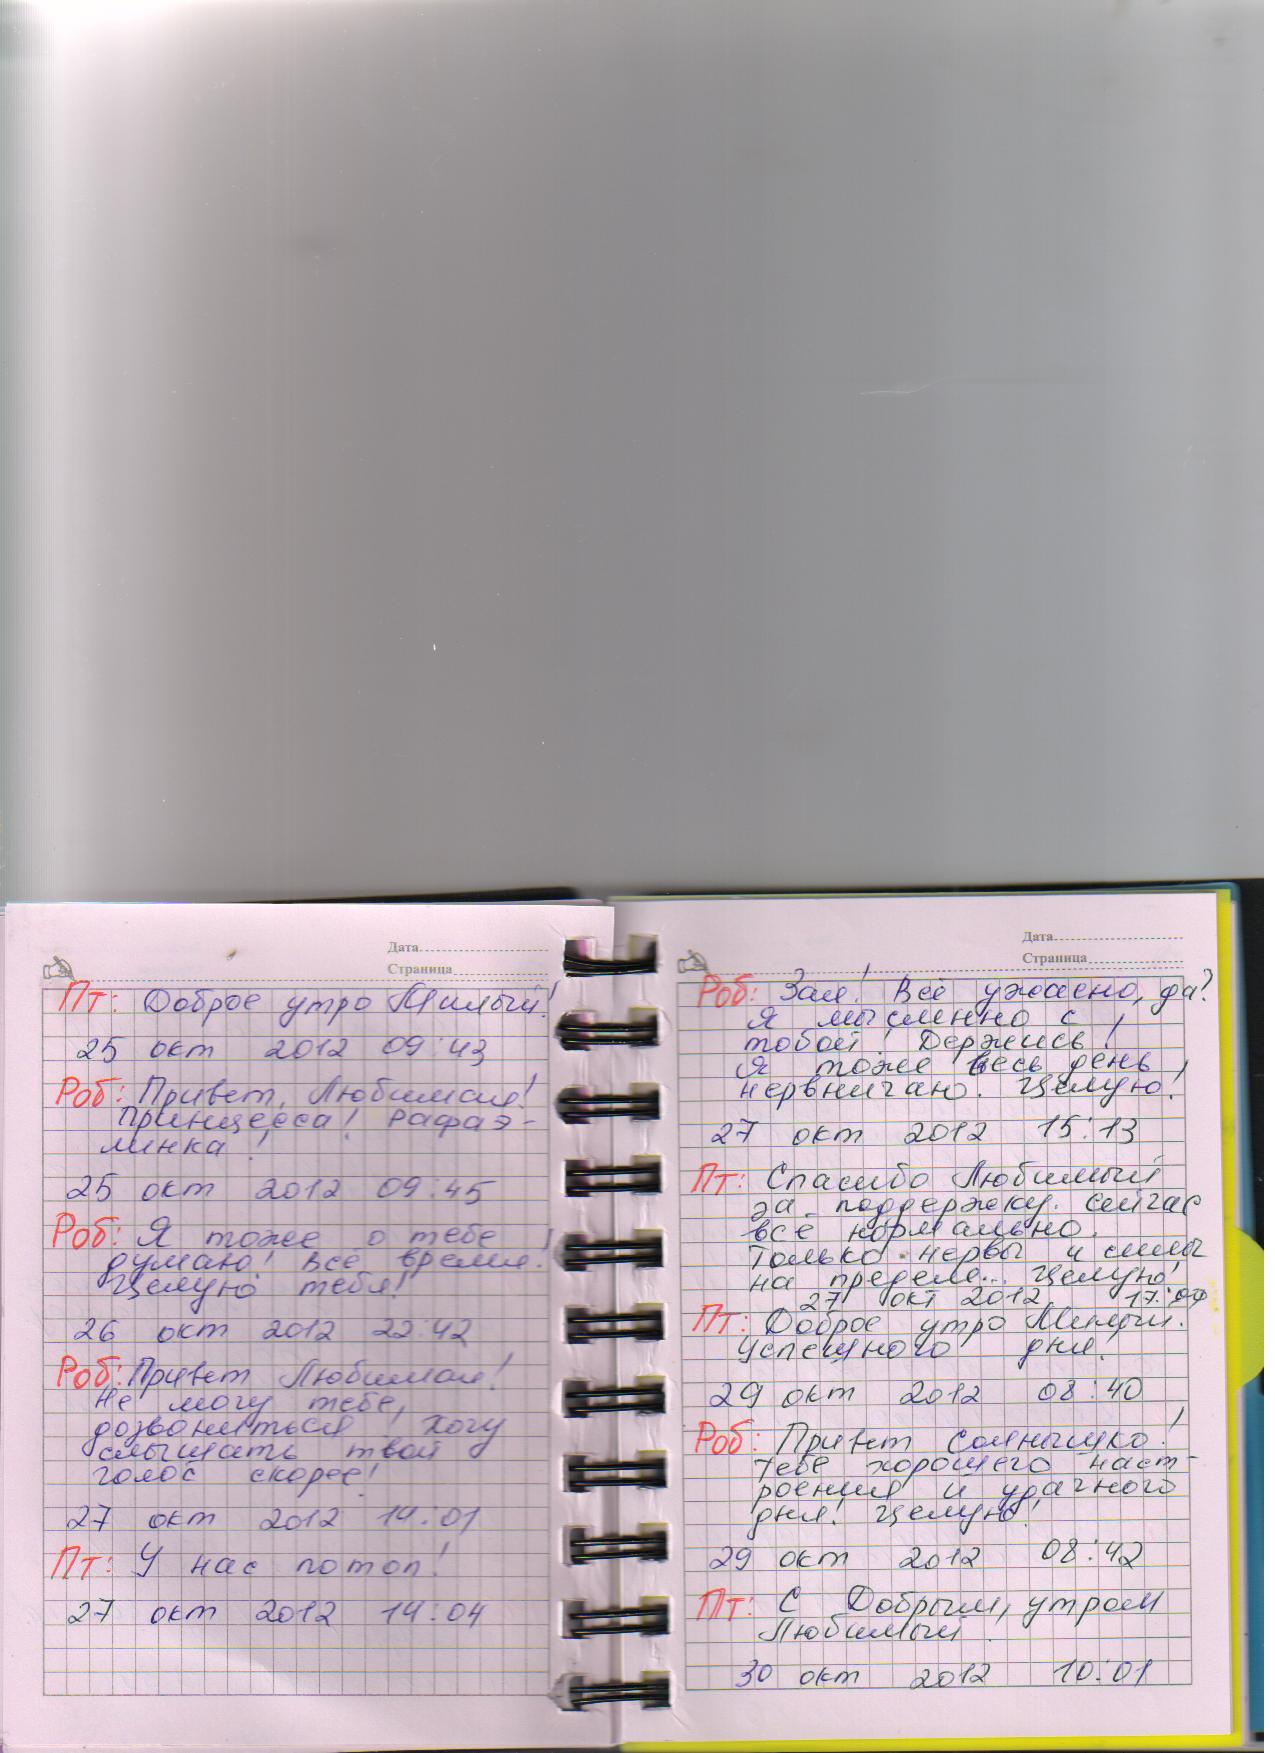 Дата
Страница
Пт: Доброе утро Милый!
25 окт 2012 09:43
Роб: Привет, Любимая!
Принцесса! Рафаэ-
линка!
25 окт 2012 09:45
Роб: Я тоже о тебе
думаю! Всё время!
Целую тебя!
26 окт 2012 22:42
Роб: Привет Любимая!
Не могу тебе,
дозвониться, хочу
слышать твой
голос скорее!
27 окт 2012 14:01
Пт: У нас потоп!
27 окт 2012 14:04
Дата
Страница
Роб: Зая! Всё ужасно, да?
Я мысленно с
тобой! Держись!
Я тоже весь день
нервничаю. Целую!
27 окт 2012 15:13
Пт: Спасибо Любимый
за поддержку. Сейчас
всё нормально.
Только нервы и силы
на пределе... Целую!
27 окт 2012
Пт: Доброе утро Милый.
Успешного дня.
29 окт 2012 08:40
Роб: Привет Солнышко!
Тебе хорошего наст-
роения и удачного
дня! Целую!
29 окт 2012 08:42
Пт: С Добрым, утром
Любимый.
30 окт 2012 10:01